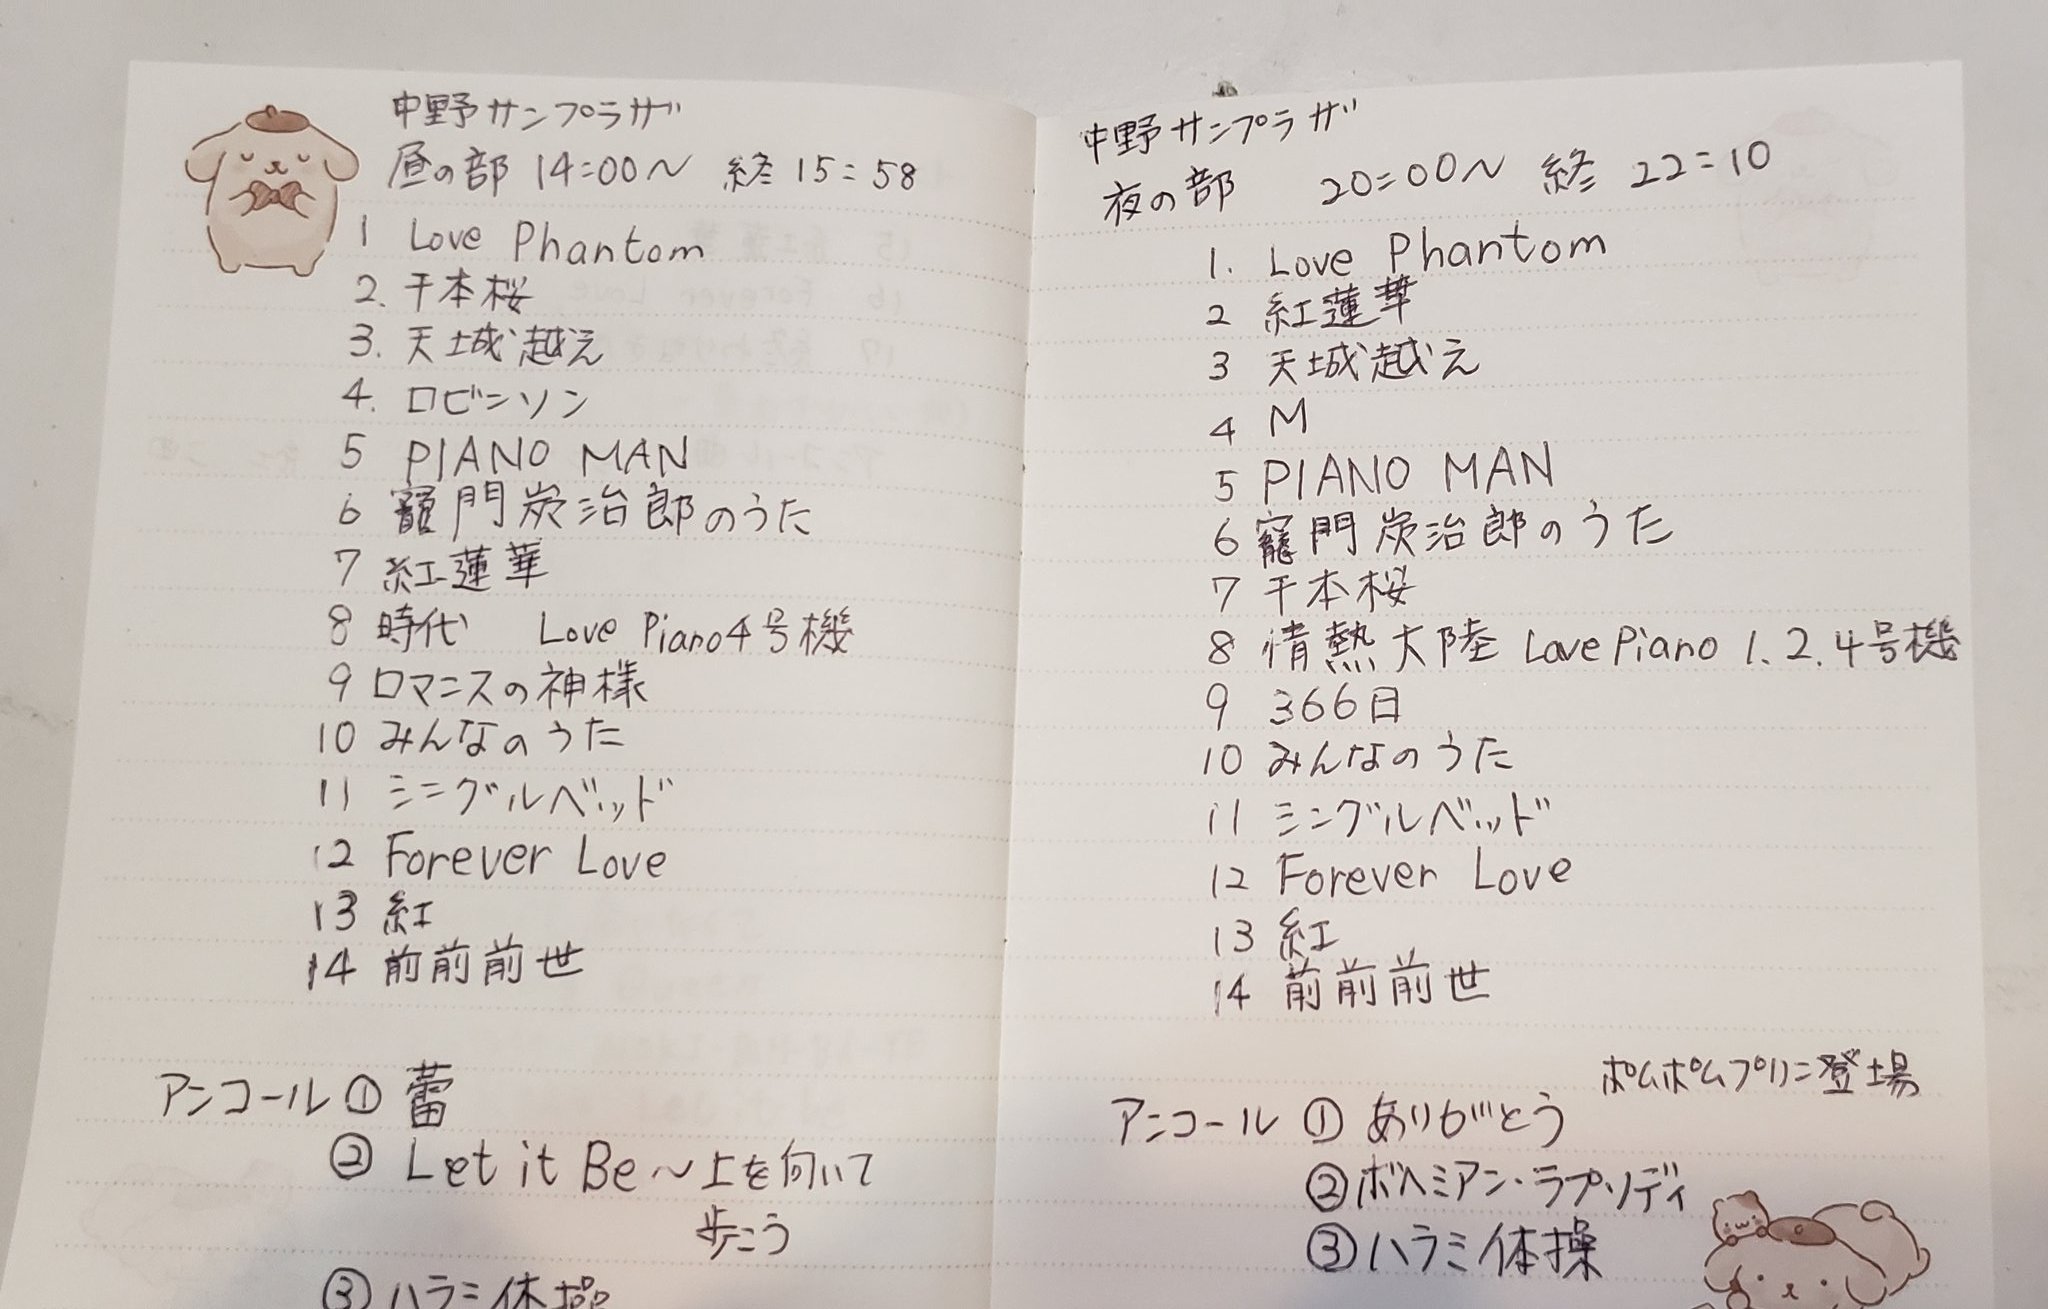 中野サンプラザ
昼の部 14:00〜 終 15:58
1 Love Phantom
2. 千本桜
3. 天城越え
4. ロビンソン
5 PIANO MAN
6 竈門炭治郎のうた
7 紅蓮華
8 時代 Love Piano4号機
9 ロマンスの神様
10 みんなのうた
11 シングルベッド
12 Forever Love
13 紅
14 前前前世
アンコール ① 蕾
② Let it Be〜上を向いて
歩こう
③ ハラミ体操
中野サンプラザ
夜の部 20:00〜 終 22:10
1. Love Phantom
2 紅蓮華
3 天城越え
4 M
5 PIANO MAN
6 竈門炭治郎のうた
7 千本桜
8 情熱大陸 Love Piano 1.2.4号機
9 366日
10 みんなのうた
11 シングルベッド
12 Forever Love
13 紅
14 前前前世
ポムポムプリン登場
アンコール ① ありがとう
② ボヘミアン・ラプソディ
③ ハラミ体操